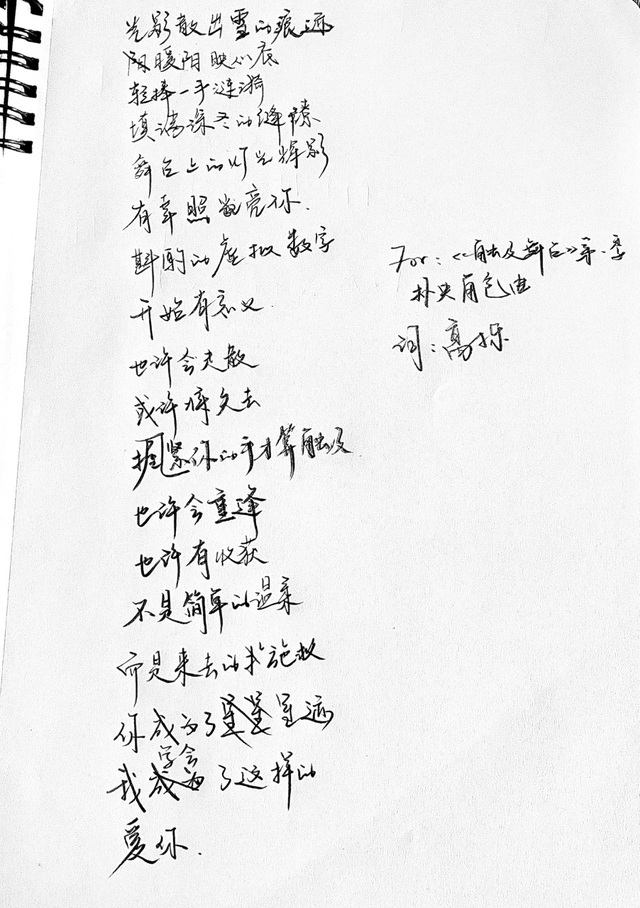 光影散出雪的痕迹
阳暖阳映心底
轻捧一手涟漪
填满深冬的缝隙
舞台上的灯光辉影
有幸照亮你.
斟酌的虚拟数字
开始有意义.
也许会失散
或许掉失去
握紧你的手才算触及
也许会重逢
也许有收获
不是简单的温柔
而是来去的
你成为了星迹
我学会了这样的
爱你.
For:《触及舞台》第一季
朴央角色曲
词:高烁